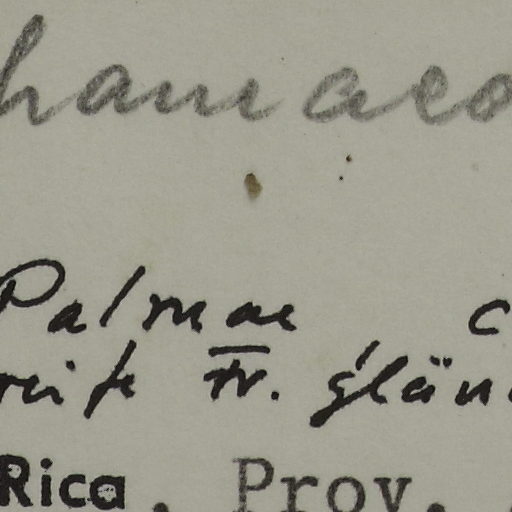 hamaedo
Palmae c
reife Fr. glän
Rica. Prov.